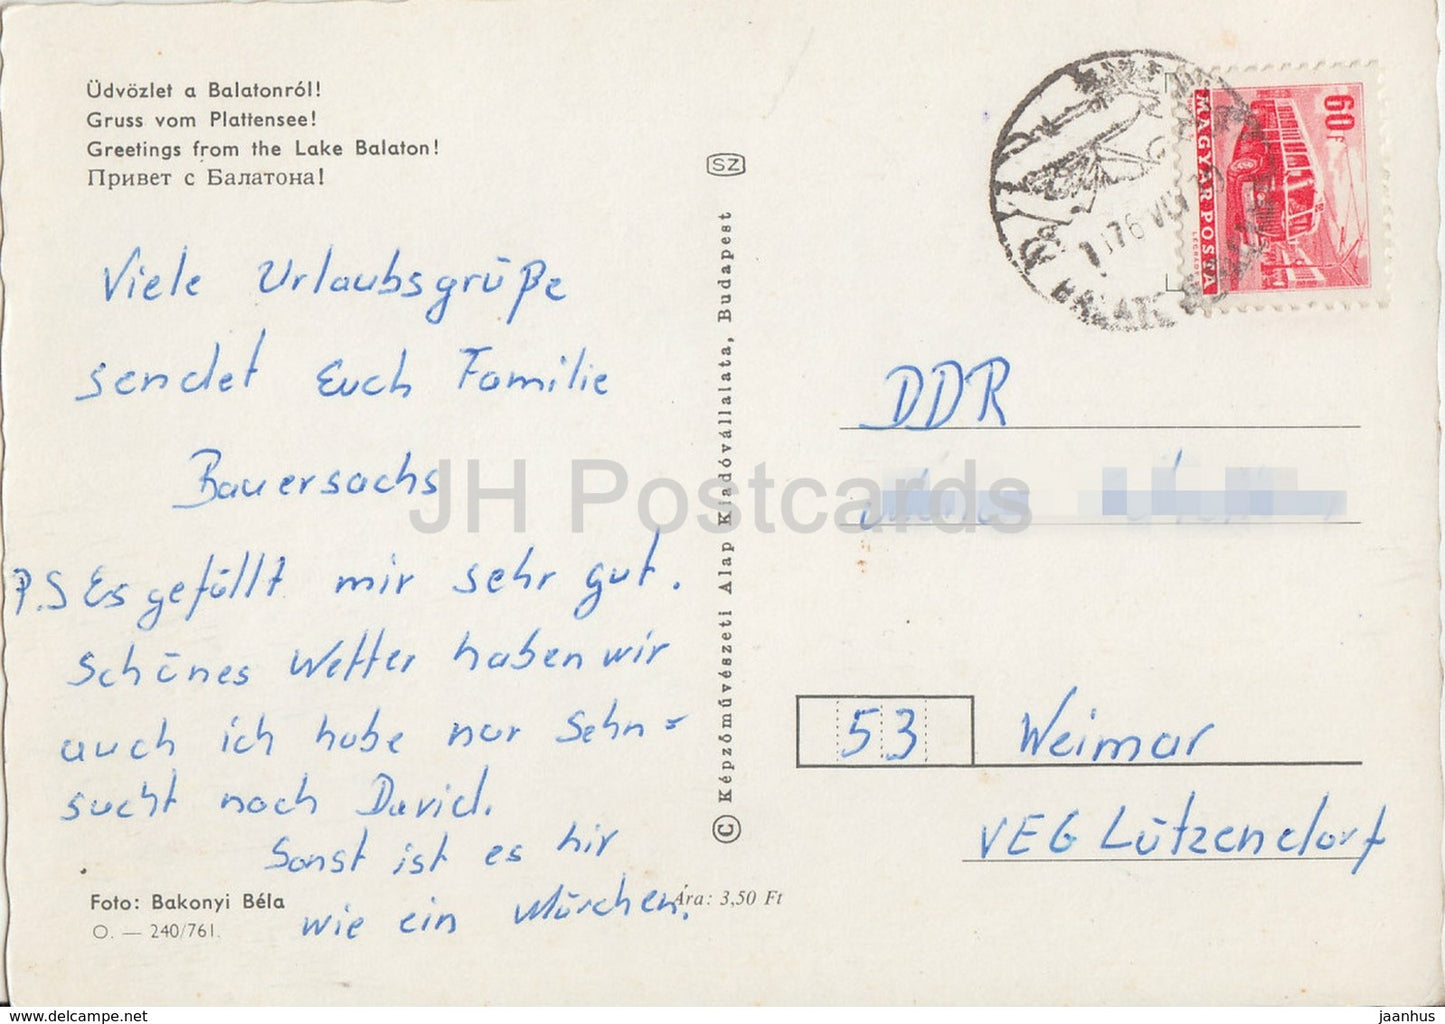 Üdvözlet a Balatonról!
Gruss vom Plattensee!
Greetings from the Lake Balaton!
Привет с Балатона!
Viele Urlaubsgrüße
sendet Euch Familie
Bauersachs
P.S Es gefällt mir sehr gut.
Schönes Wetter haben wir
auch ich habe nur Sehn=
sucht nach David.
Sonst ist es hir
wie ein Märchen.
Foto: Bakonyi Béla
O. — 240/761.
Ára: 3,50 Ft
SZ
© Képzőművészeti Alap Kiadóvállalata, Budapest
JH Postcards
60f
MAGYAR POSTA
LEGRÁDY
DDR
53 Weimar
VEG Lützendorf
HipPostcard.com
jaanhus